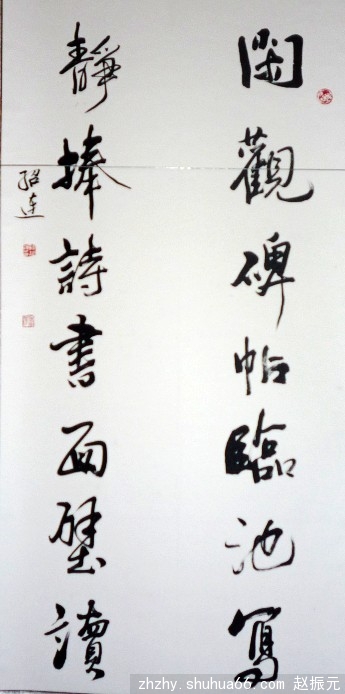 閑觀碑帖臨池寫
靜捧詩書面壁讀
紹蓮
zhzhy.shuhua66.com 赵振元